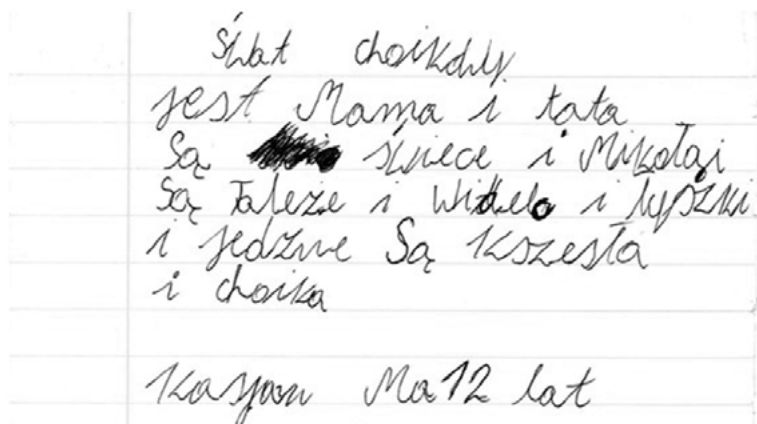 Świat choikdwy.
jest Mama i tata
Są świece i Mikołaj
Są Tależe i Widelo i łyszki
i jedzwe Są Kszesła
i choika
Kasjan Ma 12 lat